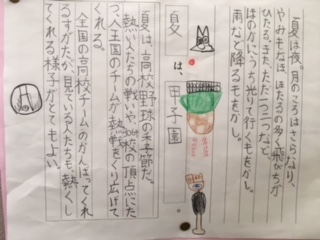 夏は夜。月のころはさらなり、
やみもなほ、ほたるの多く飛びちが
ひたる。また、ただ一つ二つなど、
ほのかにうち光りて行くもをかし。
雨など降るもをかし。
夏は、甲子園
夏は、高校野球の季節だ。
熱い人たちの戦いや、校の頂点にた
つ王国のチームが熱戦をくり広げて
くれる。
全国の高校チームのがんばってくれ
るすがたが、見ている人たちも熱くし
てくれる様子がとてもよい。